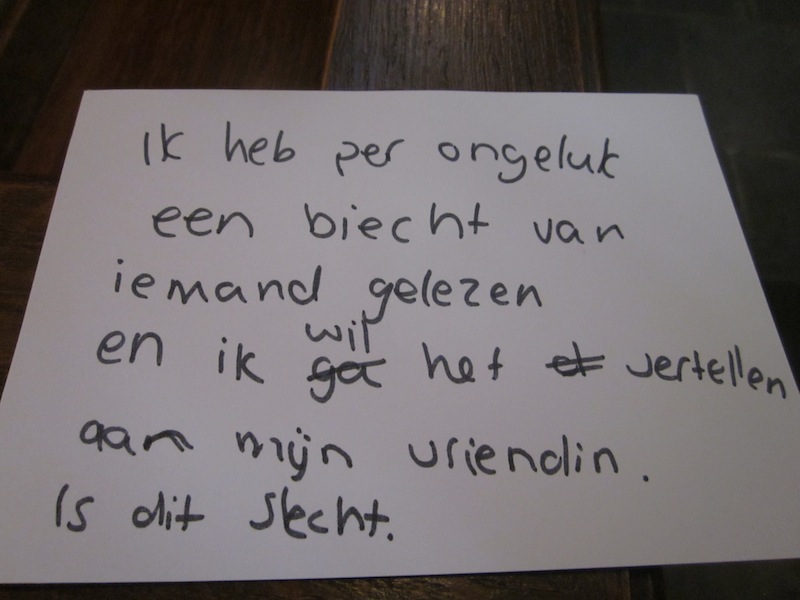 Ik heb per ongeluk
een biecht van
iemand gelezen
en ik wil het vertellen
aan mijn vriendin.
Is dit slecht.